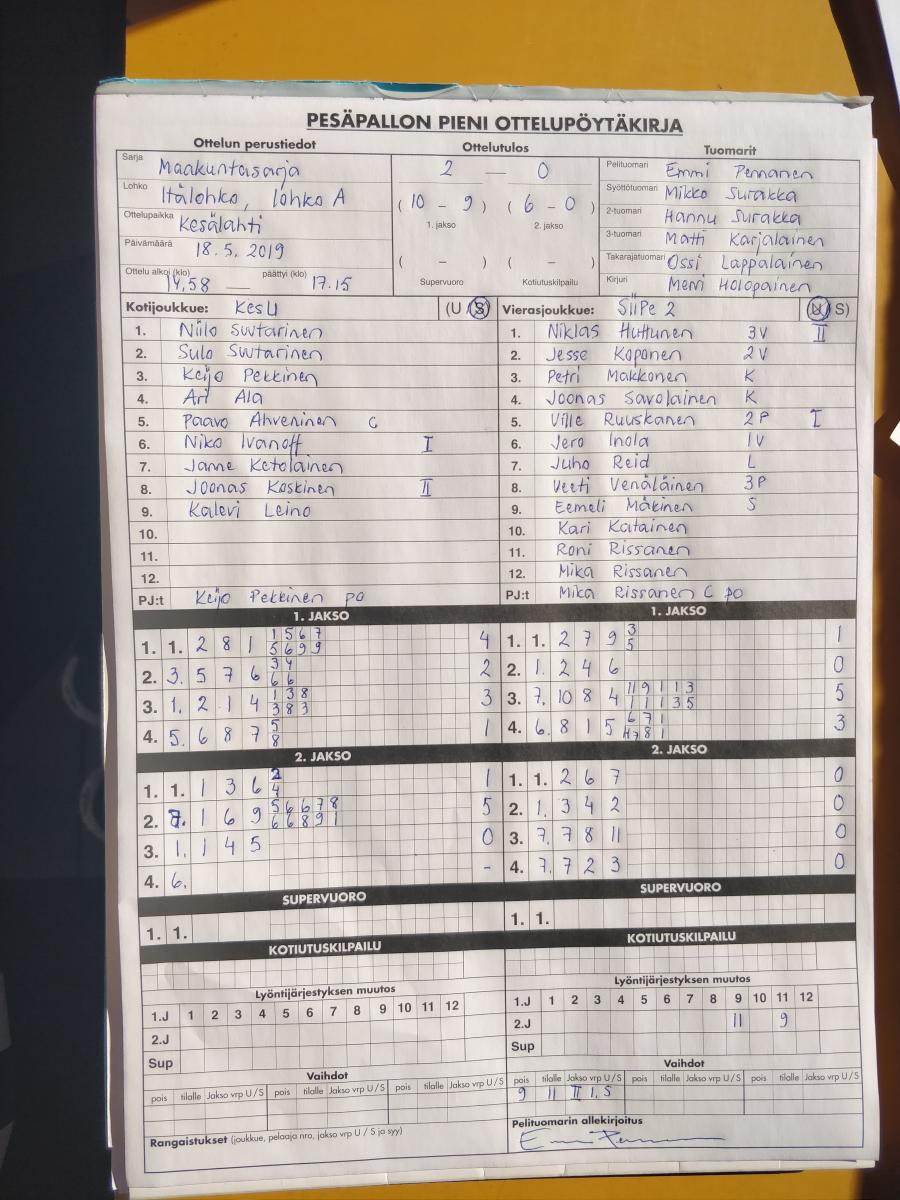 PESÄPALLON PIENI OTTELUPÖYTÄKIRJA
Ottelun perustiedot Ottelutulos Tuomarit
Sarja Maakuntasarja
Lohko Itälohko, lohko A
Ottelupaikka Kesälahti
Päivämäärä 18.5.2019
Ottelu alkoi (klo) 14.58 päättyi (klo) 17.15
2 — 0
( 10 - 9 ) ( 6 - 0 )
1. jakso 2. jakso
( – ) ( – )
Supervuoro Kotiutuskilpailu
Pelituomari Emmi Pennanen
Syöttötuomari Mikko Surakka
2-tuomari Hannu Surakka
3-tuomari Matti Karjalainen
Takarajatuomari Ossi Lappalainen
Kirjuri Merri Holopainen
Kotijoukkue: KesU (U / S)
1. Niilo Suutarinen
2. Sulo Suutarinen
3. Keijo Pekkinen
4. Ari Ala
5. Paavo Ahveninen C
6. Niko Ivanoff I
7. Janne Ketolainen
8. Joonas Koskinen II
9. Kalevi Leino
10.
11.
12.
PJ:t Keijo Pekkinen po
Vierasjoukkue: SiiPe 2 (U / S)
1. Niklas Huttunen 3V II
2. Jesse Koponen 2V
3. Petri Makkonen K
4. Joonas Savolainen K
5. Ville Ruuskanen 2P I
6. Jero Inola 1V
7. Juho Reid L
8. Veeti Venäläinen 3P
9. Eemeli Mäkinen S
10. Kari Katainen
11. Roni Rissanen
12. Mika Rissanen
PJ:t Mika Rissanen C po
1. JAKSO
1. 1. 2 8 1 1 5 6 7 4
5 6 9 9
2. 3. 5 7 6 3 4 2
6 6
3. 1. 2 1 4 1 3 8 3
3 8 3
4. 5. 6 8 7 5 1
8
1. JAKSO
1. 1. 2 7 9 3 1
5
2. 1. 2 4 6 0
3. 7. 10 8 4 11 9 1 1 3 5
1 1 1 3 5
4. 6. 8 1 5 6 7 1 3
7 8 1
2. JAKSO
1. 1. 1 3 6 2 1
4
2. 7. 1 6 9 5 6 6 7 8 5
6 6 8 9 1
3. 1. 1 4 5 0
4. 6. -
2. JAKSO
1. 1. 2 6 7 0
2. 1. 3 4 2 0
3. 7. 7 8 11 0
4. 7. 7 2 3 0
SUPERVUORO
1. 1.
SUPERVUORO
1. 1.
KOTIUTUSKILPAILU
KOTIUTUSKILPAILU
Lyöntijärjestyksen muutos
1.J 1 2 3 4 5 6 7 8 9 10 11 12
2.J
Sup
Lyöntijärjestyksen muutos
1.J 1 2 3 4 5 6 7 8 9 10 11 12
2.J 11 9
Sup
Vaihdot
pois tilalle Jakso vrp U / S pois tilalle Jakso vrp U / S pois tilalle Jakso vrp U / S
Rangaistukset (joukkue, pelaaja nro, jakso vrp U / S ja syy)
Vaihdot
pois tilalle Jakso vrp U / S pois tilalle Jakso vrp U / S pois tilalle Jakso vrp U / S
9 11 II 1. S
Pelituomarin allekirjoitus